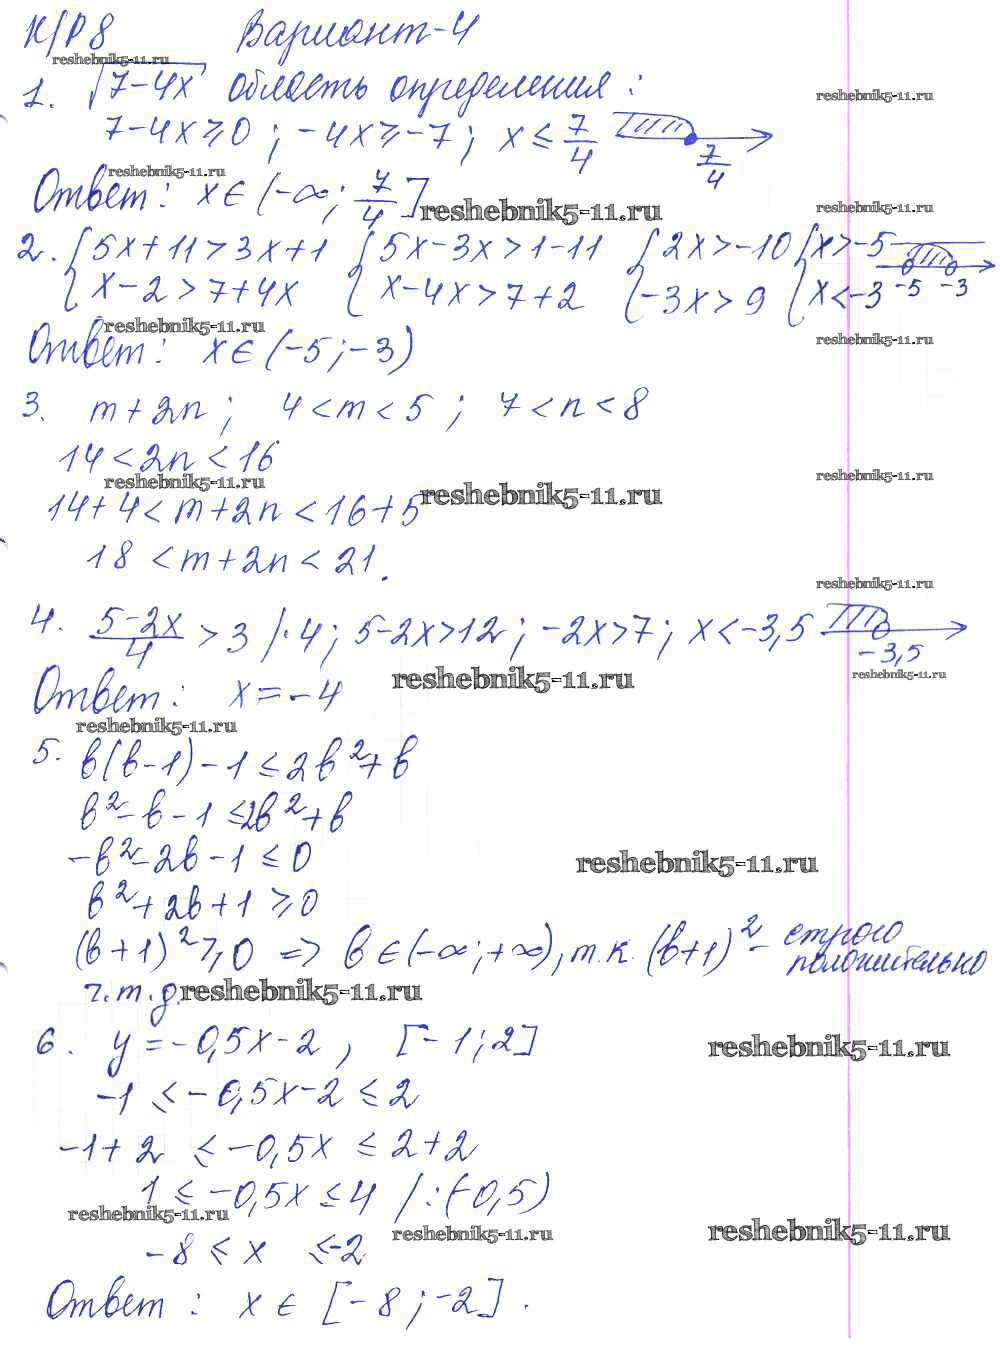 К/Р 8 Вариант-4
reshebnik5-11.ru
1. √7-4x область определения :
reshebnik5-11.ru
7-4x ≥ 0 ; -4x ≥ -7 ; x ≤ 7/4
7/4
reshebnik5-11.ru
Ответ : x ∈ (-∞; 7/4]
reshebnik5-11.ru
reshebnik5-11.ru
2. { 5x+11 > 3x+1 { 5x-3x > 1-11 { 2x > -10 { x > -5
x-2 > 7+4x x-4x > 7+2 -3x > 9 x < -3 -5 -3
reshebnik5-11.ru
Ответ : x ∈ (-5 ; -3)
reshebnik5-11.ru
3. m + 2n ; 4 < m < 5 ; 7 < n < 8
14 < 2n < 16
reshebnik5-11.ru
reshebnik5-11.ru
reshebnik5-11.ru
14 + 4 < m + 2n < 16 + 5
18 < m + 2n < 21.
reshebnik5-11.ru
4. 5-2x/4 > 3 /·4 ; 5-2x > 12 ; -2x > 7 ; x < -3,5
-3,5
reshebnik5-11.ru
reshebnik5-11.ru
Ответ : x = -4
reshebnik5-11.ru
5. b(b-1) - 1 ≤ 2b² + b
b² - b - 1 ≤ 2b² + b
-b² - 2b - 1 ≤ 0
reshebnik5-11.ru
b² + 2b + 1 ≥ 0
(b+1)² ≥ 0 => b ∈ (-∞; +∞), т.к. (b+1)² - строго
положительно
ч.т.д.
reshebnik5-11.ru
6. y = -0,5x - 2 , [-1 ; 2]
reshebnik5-11.ru
-1 ≤ -0,5x - 2 ≤ 2
-1 + 2 ≤ -0,5x ≤ 2 + 2
1 ≤ -0,5x ≤ 4 / : (-0,5)
reshebnik5-11.ru
reshebnik5-11.ru
reshebnik5-11.ru
-8 ≤ x ≤ -2
Ответ : x ∈ [-8 ; -2] .